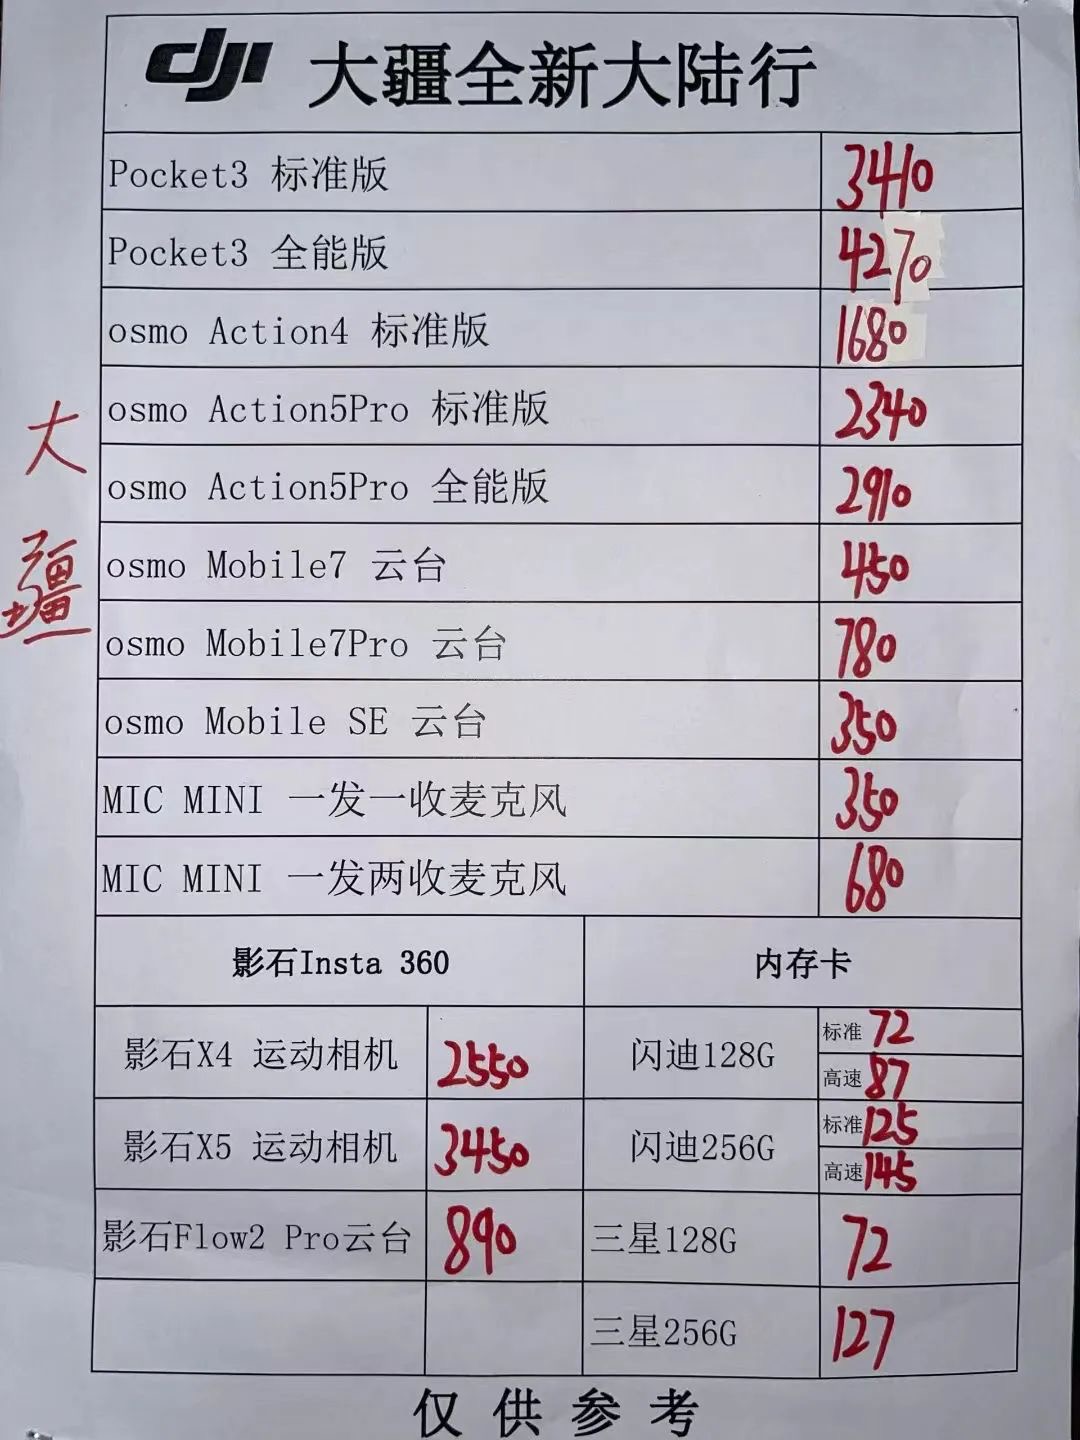 dji 大疆全新大陆行
Pocket3 标准版 3410
Pocket3 全能版 4270
osmo Action4 标准版 1680
osmo Action5Pro 标准版 2340
osmo Action5Pro 全能版 2910
osmo Mobile7 云台 450
osmo Mobile7Pro 云台 780
osmo Mobile SE 云台 350
MIC MINI 一发一收麦克风 350
MIC MINI 一发两收麦克风 680
大疆
影石Insta 360 内存卡
影石X4 运动相机 2550 闪迪128G 标准 72
高速 87
影石X5 运动相机 3450 闪迪256G 标准 125
高速 145
影石Flow2 Pro云台 890 三星128G 72
三星256G 127
仅供参考